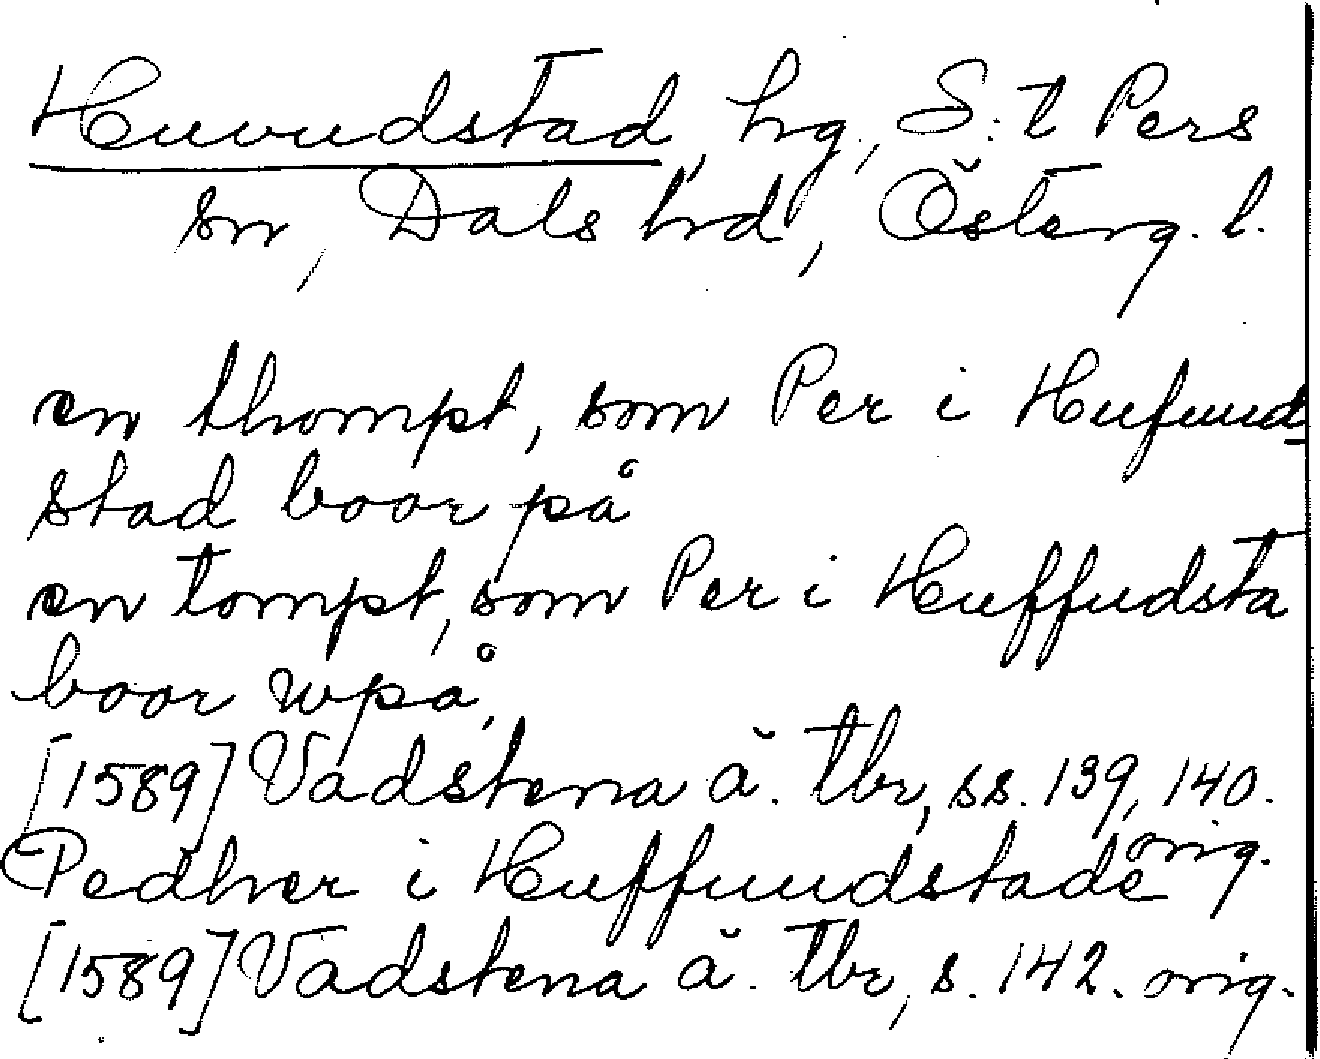 Huvudstad, hg, S:t Pers
sn, Dals hd, Österg. l.
en thompt, som Per i Hufuud-
stad boor på
en tompt, som Per i Huffudsta
boor wpå,
[1589] Vadstena ä. tbr, ss. 139, 140.
orig.
Pedher i Huffuudstade
[1589] Vadstena ä. tbr, s. 142. orig.